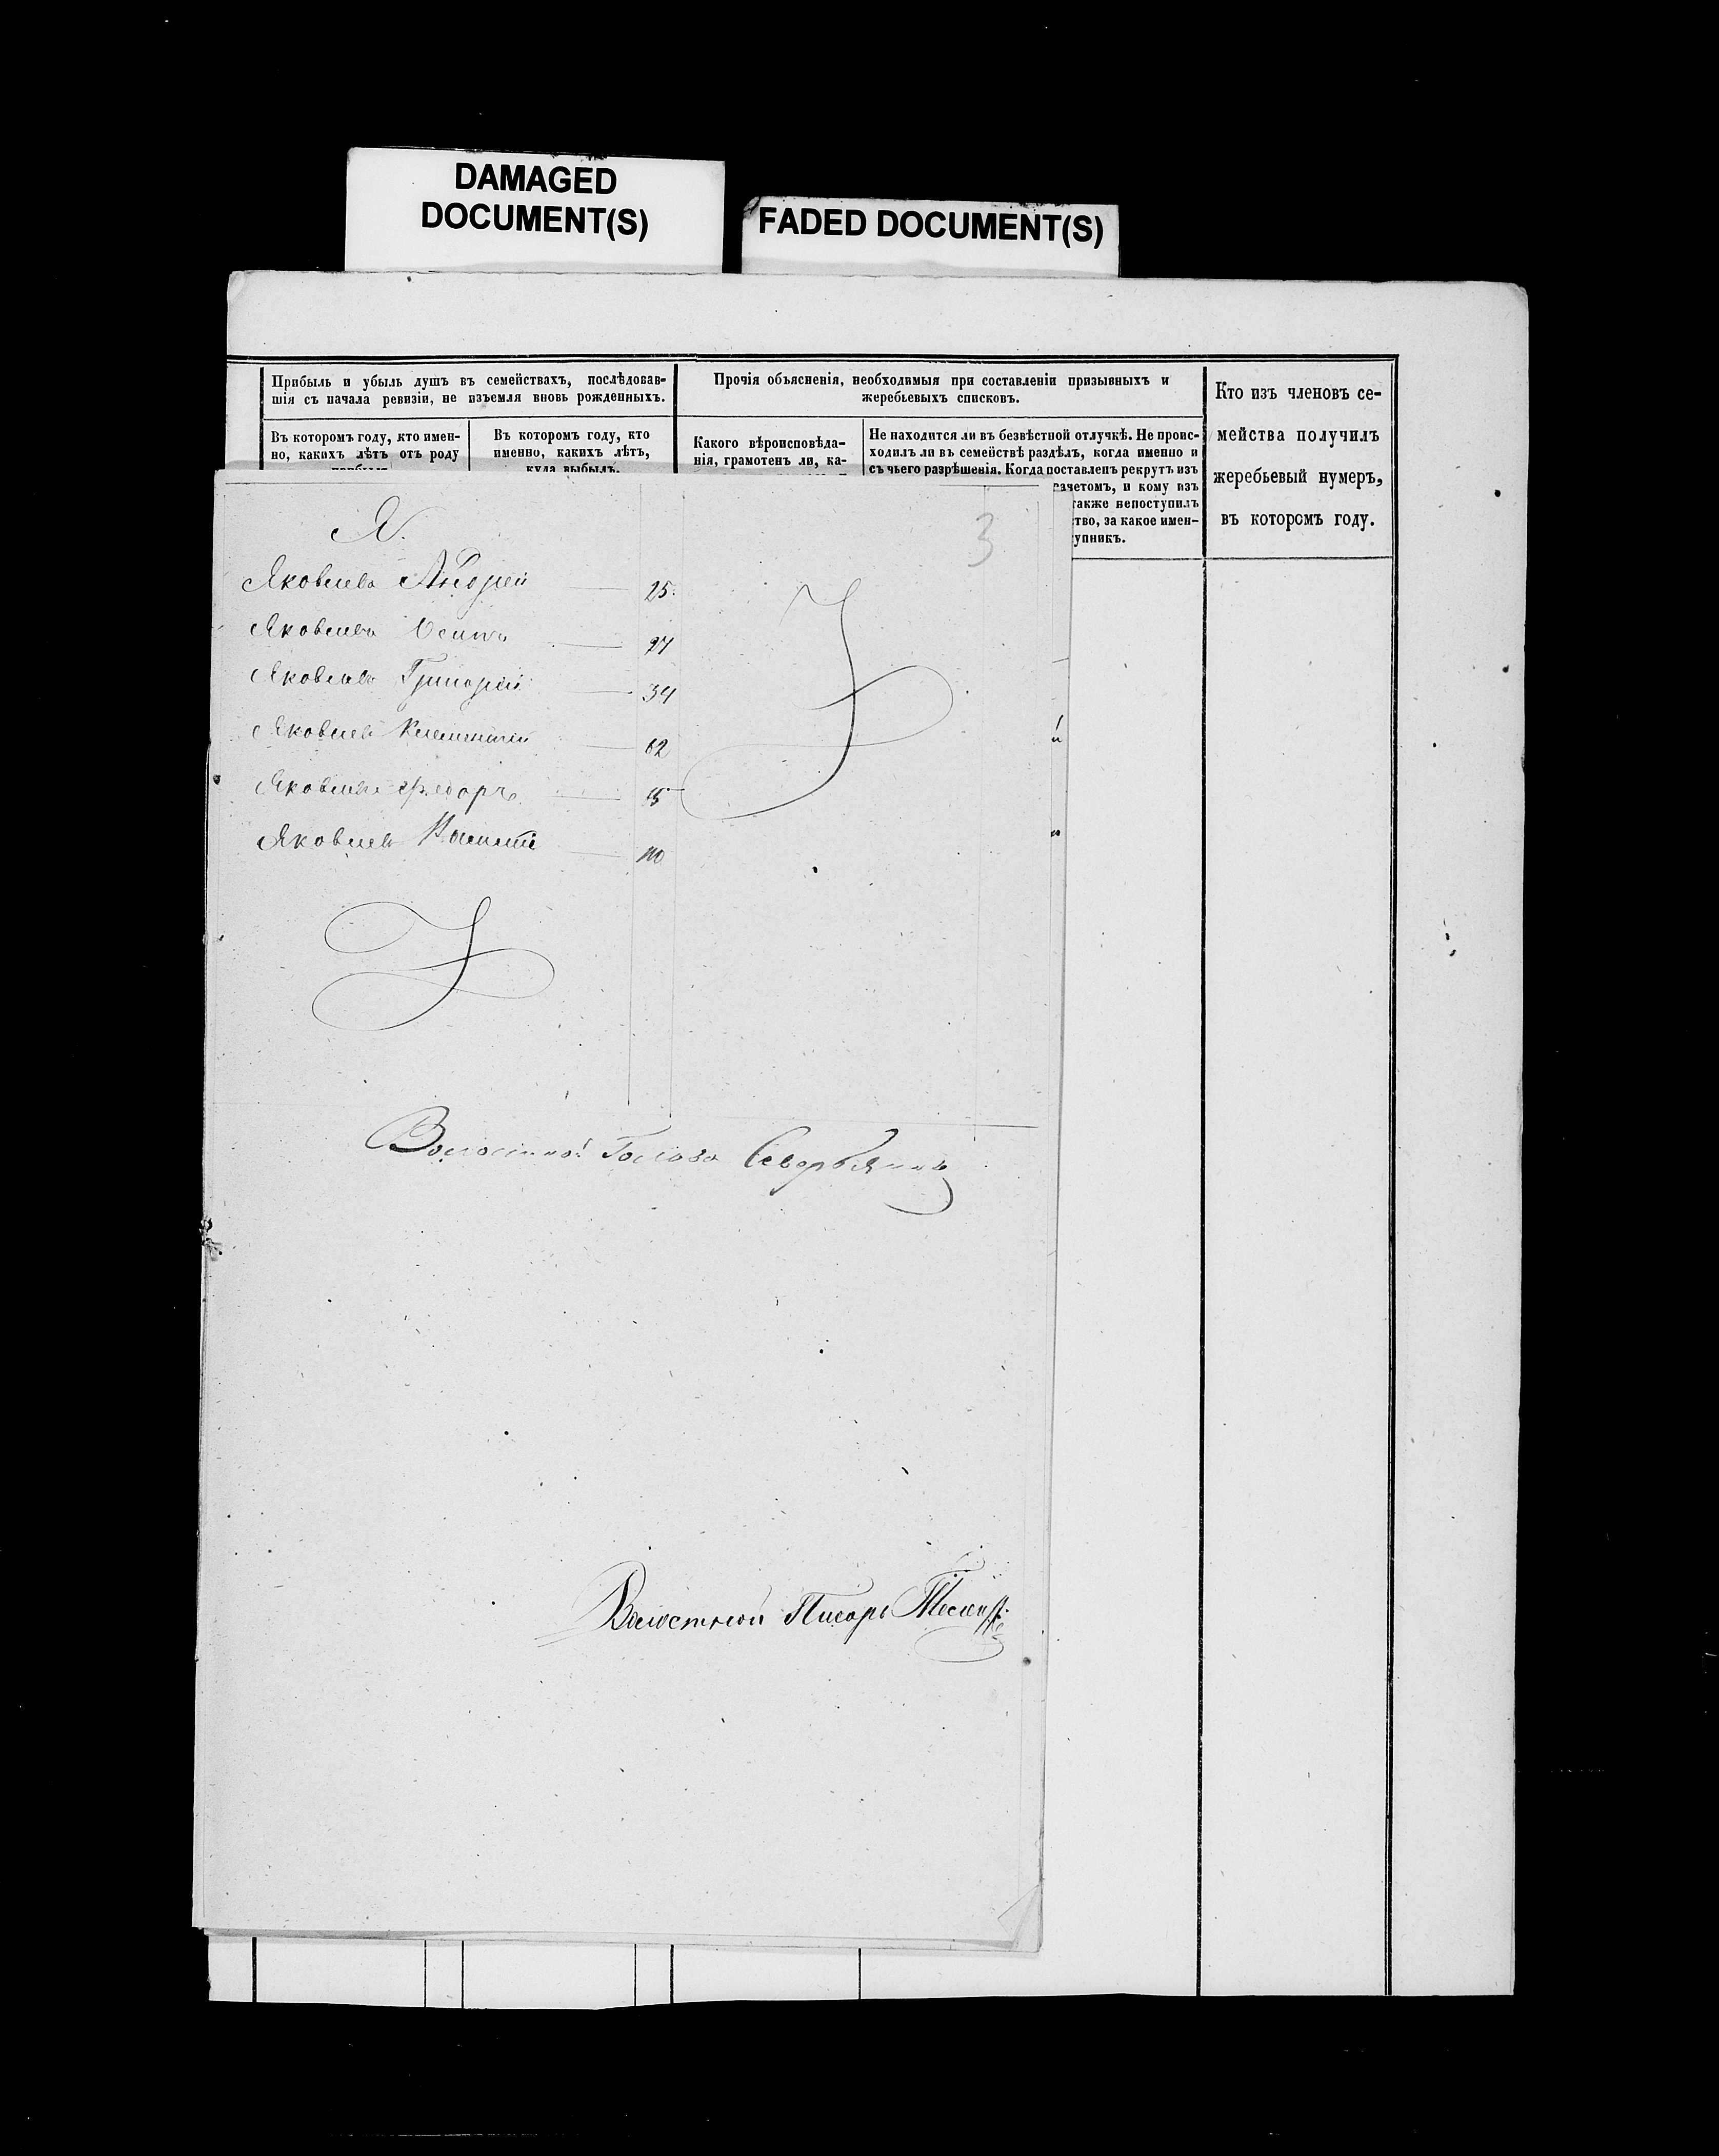 DAMAGED
DOCUMENT(S)
FADED DOCUMENT(S)
Прибыль и убыль душъ въ семействахъ, послѣдовав-
шія съ начала ревизіи, не изъемля вновь рожденныхъ.
Въ которомъ году, кто имен-
но, какихъ лѣтъ отъ роду
прибылъ
Въ которомъ году, кто
именно, какихъ лѣтъ,
куда выбылъ.
Прочія объясненія, необходимыя при составленіи призывныхъ и
жеребьевыхъ списковъ.
Какого вѣроисповѣда-
нія, грамотенъ ли, ка-
Не находится ли въ безвѣстной отлучкѣ. Не проис-
ходилъ ли въ семействѣ раздѣлъ, когда именно и
съ чьего разрѣшенія. Когда поставленъ рекрутъ изъ
зачетомъ, и кому изъ
также непоступилъ
ство, за какое имен-
упникъ.
Кто изъ членовъ се-
мейства получилъ
жеребьевый нумеръ,
въ которомъ году.
3
Я.
Яковлевъ Андрей 25.
Яковлевъ Осипъ
Яковлевъ Григорій 34
Яковлевъ 62
Яковлевъ Федоръ
Яковлевъ 110
Волостной Голова Северьянов
Волостной Писарь